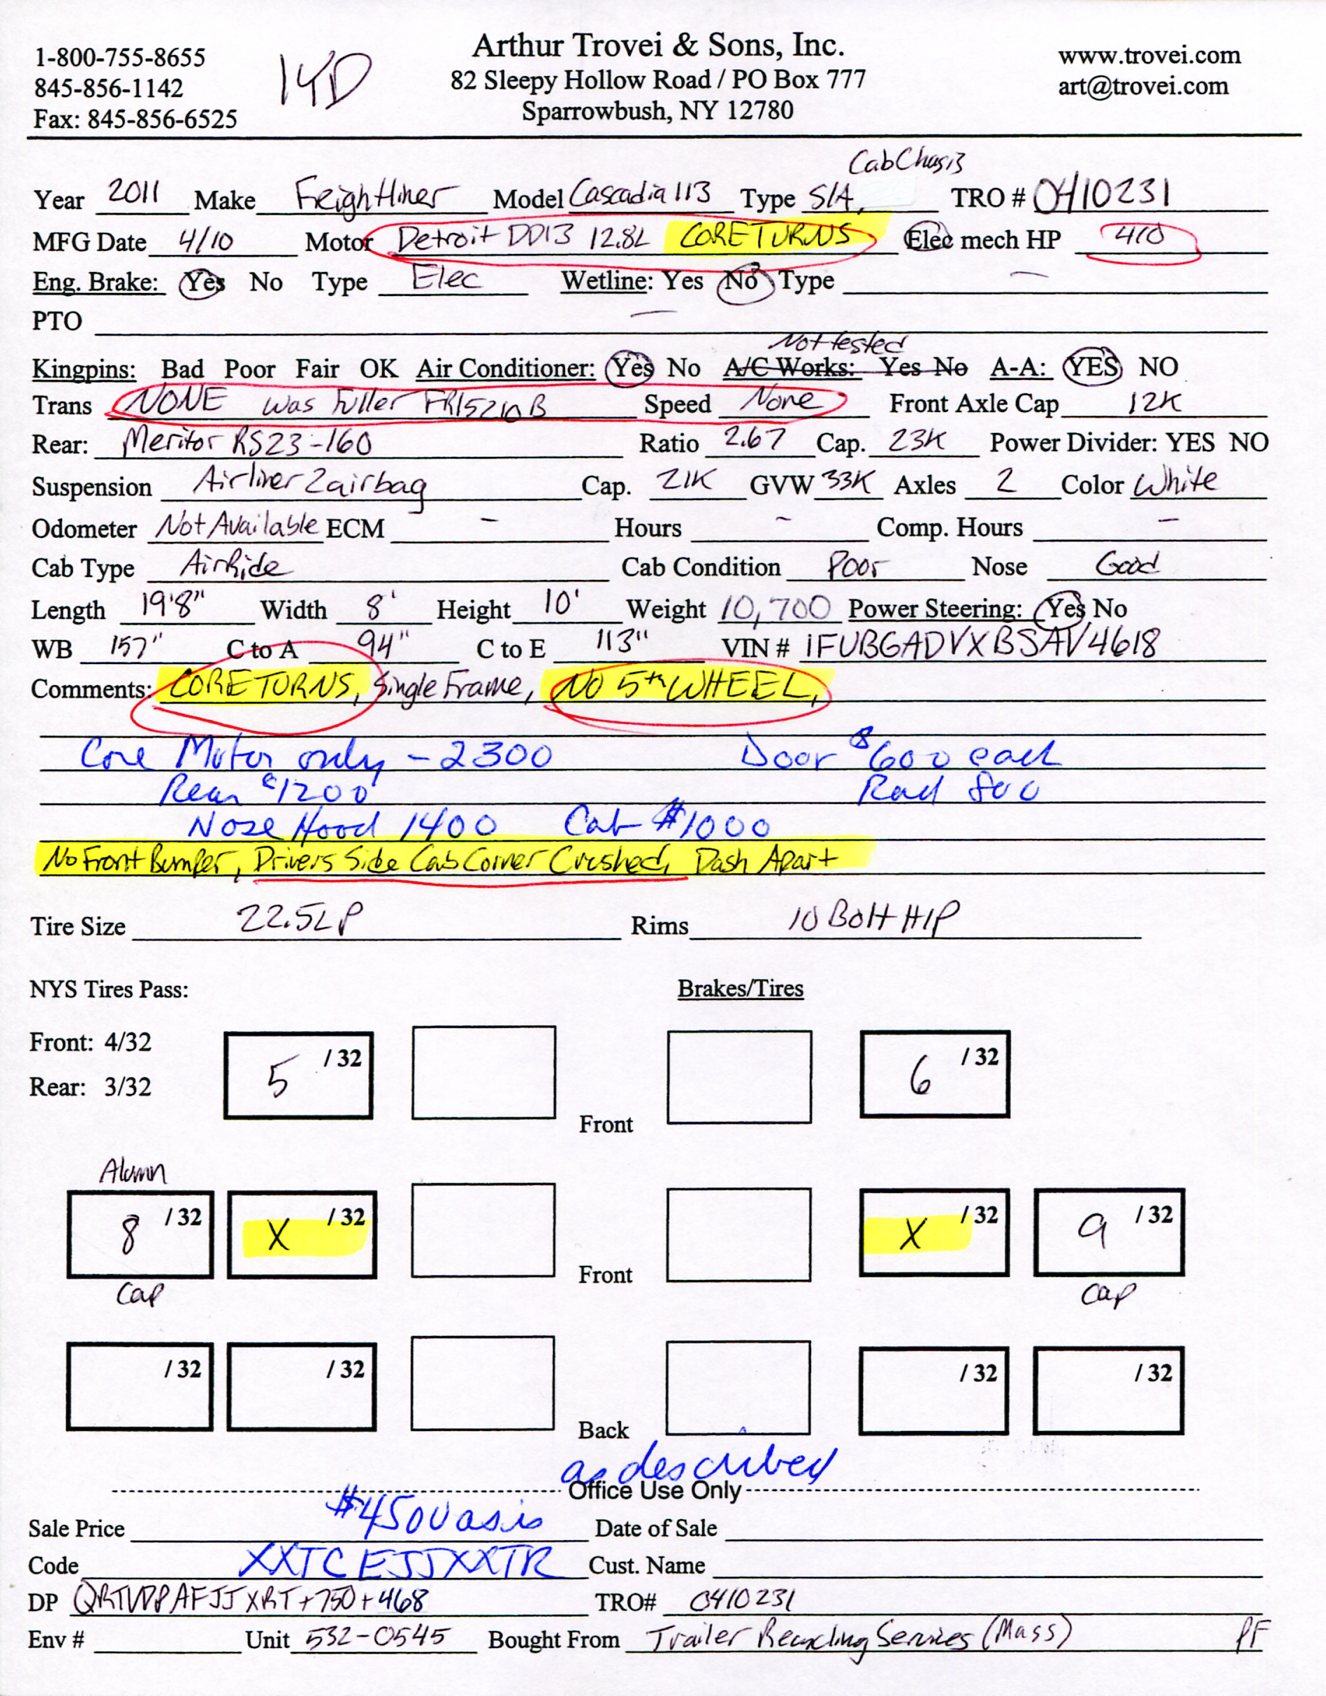 1-800-755-8655
845-856-1142
Fax: 845-856-6525
14D
Arthur Trovei & Sons, Inc.
82 Sleepy Hollow Road / PO Box 777
Sparrowbush, NY 12780
www.trovei.com
art@trovei.com
Cab Chasis
Year 2011 Make Freightliner Model Cascadia 113 Type S/A, TRO # 0410231
MFG Date 4/10 Motor Detroit DD13 12.8L CORE TURNS Elec mech HP 410
Eng. Brake: Yes No Type Elec Wetline: Yes No Type —
PTO —
Not tested
Kingpins: Bad Poor Fair OK Air Conditioner: Yes No A/C Works: Yes No A-A: YES NO
Trans NONE was Fuller FR15210B Speed None Front Axle Cap 12K
Rear: Meritor RS23-160 Ratio 2.67 Cap. 23K Power Divider: YES NO
Suspension Airliner 2 airbag Cap. 21K GVW 33K Axles 2 Color White
Odometer Not Available ECM - Hours - Comp. Hours -
Cab Type AirRide Cab Condition Poor Nose Good
Length 19'8" Width 8' Height 10' Weight 10,700 Power Steering: Yes No
WB 157" C to A 94" C to E 113" VIN # 1FUBGADVXBSAV4618
Comments: CORE TURNS, Single Frame, NO 5th WHEEL,
Core Motor only - 2300 Door $600 each
Rear $1200 Rad 800
Nose Hood 1400 Cab $1000
No Front Bumper, Drivers Side Cab Corner Crushed, Dash Apart
Tire Size 22.5LP Rims 10 Bolt H/P
NYS Tires Pass: Brakes/Tires
Front: 4/32
Rear: 3/32
5 /32 6 /32
Front
Alumn
8 /32 X /32 X /32 9 /32
Front
Cap Cap
/32 /32 /32 /32
Back
as described
Office Use Only
Sale Price $4500 as is Date of Sale
Code XXTCEJJXXTR Cust. Name
DP +750+468 TRO# 0410231
Env # Unit 532-0545 Bought From Trailer Recycling Services (Mass) PF